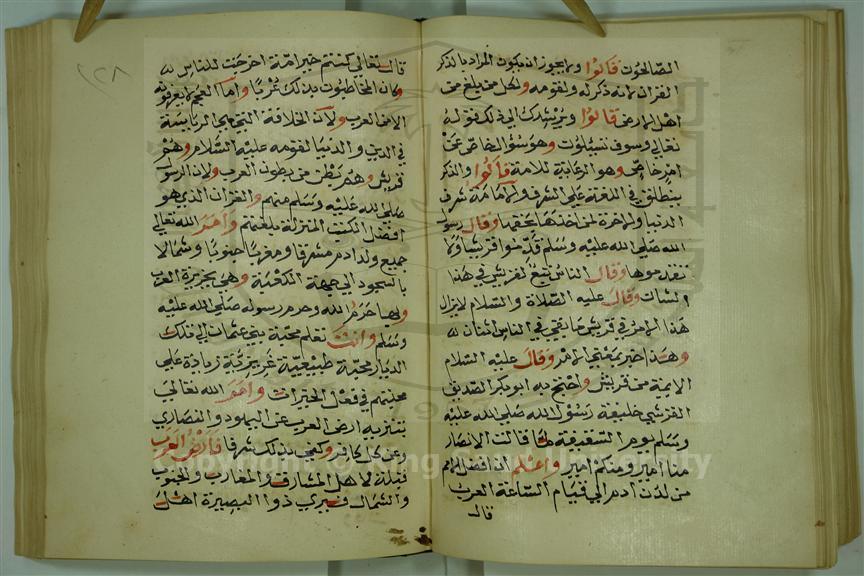 الصالحون قالوا ولا يجوز ان يكون المراد بالذكر
القران لانه ذكر له ولقومه ولكل من بلغ من
اهل الارض قالوا ويرشدك الى ذلك قوله
تعالى وسوف تسئلون وهو سؤال خاص عن
امر خاص وهو الرعاية للامة قالوا والذكر
ينطلق في اللغة على الشرف والامامة شرف
الدنيا والاخرة لمن اخذها بحقها وقال رسول
الله صلى الله عليه وسلم قدموا قريشا ولا
تقدموها وقال الناس تبع لقريش في هذا
الشان وقال عليه الصلاة والسلام لا يزال
هذا الامر في قريش ما بقي في الناس اثنان
وهذا خبر بمعنى الامر وقال عليه السلام
الايمة من قريش واحتج به ابو بكر الصديق
القرشي خليفة رسول الله صلى الله عليه
وسلم يوم السقيفة لما قالت الانصار
منا امير ومنكم امير واعلم ان افضل الامم
من لدن ادم الى قيام الساعة العرب
قال
قال تعالى كنتم خير امة اخرجت للناس
وكان المخاطبون بذلك عربا واما العجم لا يعرفونه
الا من العرب ولان الخلافة التي هي الرياسة
في الدين والدنيا لقومه عليه السلام وهم
قريش وهم بطن من بطون العرب ولان الرسول
صلى الله عليه وسلم منهم والقران الذي هو
افضل الكتب المنزلة بلغتهم وامر الله تعالى
جميع ولد ادم مشرقا ومغربا جنوبا وشمالا
بالسجود الى جهة الكعبة وهي بجزيرة العرب
وبها حرم الله وحرم رسوله صلى الله عليه
وسلم وانت تعلم محبة بني عثمان لتلك
الديار محبة طبيعية غريزية زيادة على
محبتهم في فعل الخيرات وامر الله تعالى
بتنزيه ارض العرب عن اليهود والنصارى
وعن كل كافر وكفى بذلك شرفا فارض العرب
قبلة لاهل المشارق والمغارب والجنوب
والشمال فيرى ذو البصيرة اهل
Copyright © King Saud University